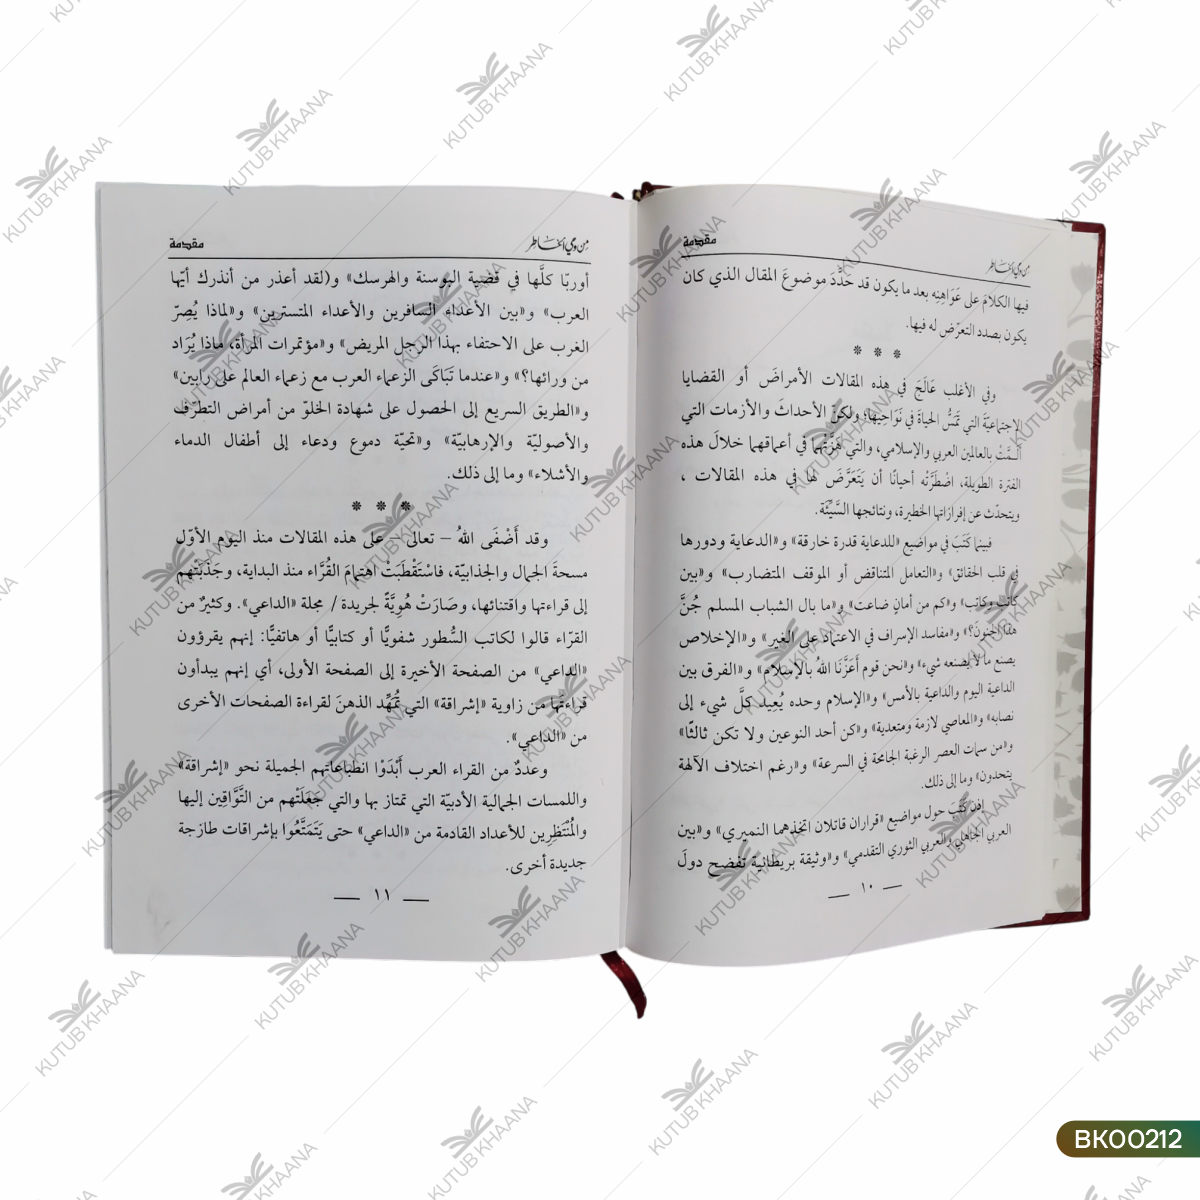 من وحي الخاطر
مقدمة
فيها الكلامَ على عَوَاهِنِه بعد ما يكون قد حَدَّدَ موضوعَ المقال الذي كان
يكون بصدد التعرّض له فيها.
* * *
وفي الأغلب عَالَجَ في هذه المقالات الأمراضَ أو القضايا
الاجتماعيّة التي تَمَسُّ الحياةَ في نَوَاحِيها؛ ولكنّ الأحداثَ والأزمات التي
ألـمَّتْ بالعالمين العربي والإسلامي، والتي هَزَّتْهما في أعماقهما خلالَ هذه
الفترة الطويلة، اضْطَرَّتْه أحيانًا أن يَتَعَرَّضَ لها في هذه المقالات ،
ويتحدّث عن إفرازاتها الخطيرة، ونتائجها السَّيِّئَة.
فبينما كَتَبَ في مواضيع «للدعاية قدرة خارقة» و«الدعاية ودورها
في قلب الحقائق» و«التعامل المتناقض أو الموقف المتضارب» و«بين
كاتب وكاتب» و«كم من أمانٍ ضاعت» و«ما بال الشباب المسلم جُنَّ
هذا الجنونَ؟» و«مفاسد الإسراف في الاعتماد على الغير» و«الإخلاص
يصنع ما لا يصنعه شيء» و«نحن قوم أَعَزَّنَا اللهُ بالإسلام» و«الفرق بين
الداعية اليوم والداعية بالأمس» و«الإسلام وحده يُعِيد كلَّ شيء إلى
نصابه» و«المعاصي لازمة ومتعدية» و«كن أحد النوعين ولا تكن ثالثًا»
و«من سمات العصر الرغبة الجامحة في السرعة» و«رغم اختلاف الآلهة
يتحدون» وما إلى ذلك.
إذن كَتَبَ حول مواضيع «قراران قاتلان اتخذهما النميري» و«بين
العربي الجاهلي والعربي الثوري التقدمي» و«وثيقة بريطانية تفضح دولَ
— ١٠ —
من وحي الخاطر
مقدمة
أوربّا كلَّها في قضية البوسنة والهرسك» و(لقد أعذر من أنذرك أيّها
العرب» و«بين الأعداء السافرين والأعداء المتسترين» و«لماذا يُصِرّ
الغرب على الاحتفاء بهذا الرجل المريض» و«مؤتمرات المرأة، ماذا يُرَاد
من ورائها؟» و«عندما تَبَاكَى الزعماء العرب مع زعماء العالم على رابين»
و«الطريق السريع إلى الحصول على شهادة الخلوّ من أمراض التطرّف
والأصوليّة والإرهابيّة» و«تحيّة دموع ودعاء إلى أطفال الدماء
والأشلاء» وما إلى ذلك.
* * *
وقد أَضْفَى اللهُ – تعالى – على هذه المقالات منذ اليوم الأوّل
مسحةَ الجمال والجذابيّة، فاسْتَقْطَبَتْ اهتمامَ القُرَّاء منذ البداية، وجَذَبَتْهم
إلى قراءتها واقتنائها، وصَارَتْ هُوِيَّةً لجريدة / مجلة «الداعي». وكثيرٌ من
القرّاء قالوا لكاتب السُّطور شفويًّا أو كتابيًّا أو هاتفيًّا: إنهم يقرؤون
«الداعي» من الصفحة الأخيرة إلى الصفحة الأولى، أي إنهم يبدأون
قراءتَها من زاوية «إشراقة» التي تُمَهِّد الذهنَ لقراءة الصفحات الأخرى
من «الداعي».
وعددٌ من القراء العرب أَبْدَوْا انطباعاتهم الجميلة نحو «إشراقة»
واللمسات الجمالية الأدبيّة التي تمتاز بها والتي جَعَلَتْهم من التَّوَّاقِين إليها
والمُنْتَظِرِين للأعداد القادمة من «الداعي» حتى يَتَمَتَّعُوا بإشراقات طازجة
جديدة أخرى.
— ١١ —
KUTUB KHAANA
BK00212